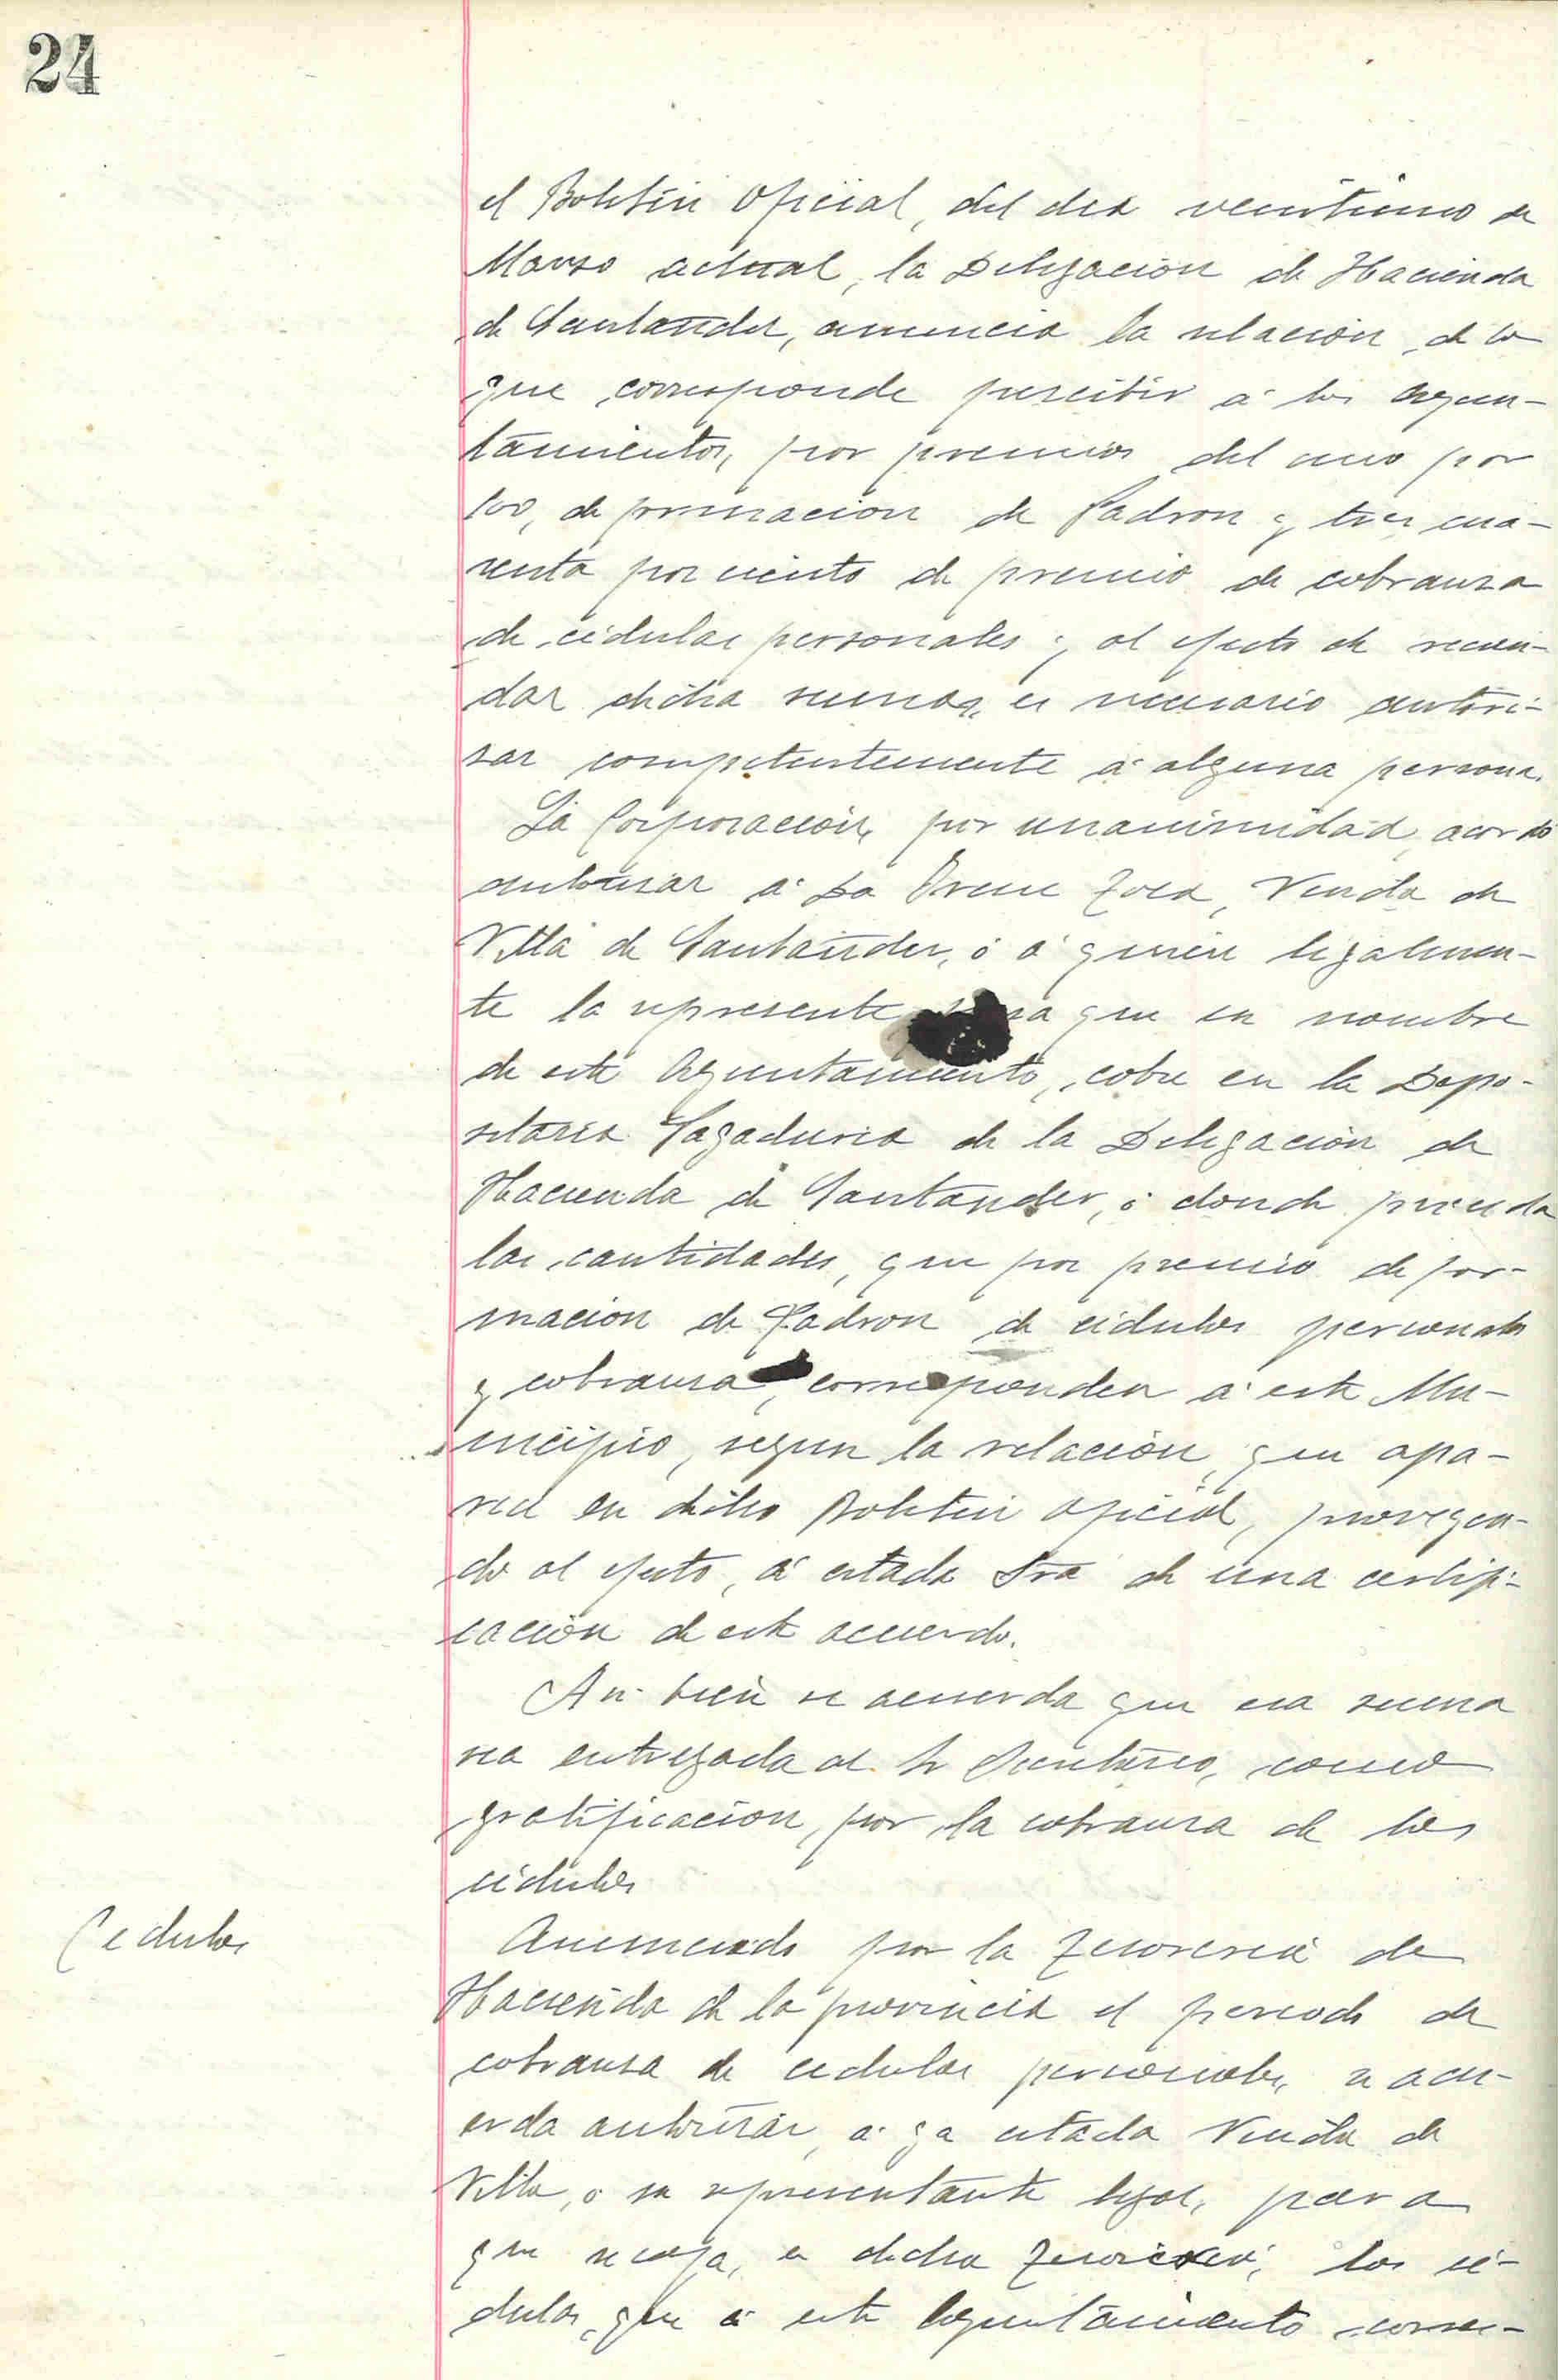 24
el Boletín Oficial, del dia veintiuno de
Marzo actual, la Delegación de Hacienda
de Santander, anuncia la relación de lo
que corresponde percibir á los Ayun-
tamientos, por premios del uno por
100, de formacion de Padron y tres cua-
renta por ciento de premio de cobranza
de cédulas personales; al efecto de recau-
dar dicha suma, es necesario autori-
zar competentemente á alguna persona.
La Corporación, por unanimidad, acordó
autorizar á Da Irene Zoca, Viuda de
Villa de Santander, ó á quien legalmen-
te la represente para que en nombre
de este Ayuntamiento, cobre en la Depo-
sitaria Pagaduria de la Delegación de
Hacienda de Santander, ó donde proceda
las cantidades, que por premio de for-
macion de Padron de cédulas personales
y cobranza, corresponden á este Mu-
nicipio, segun la relación, que apa-
rece en dicho Boletin oficial, proveyen-
do al efecto, á citada Sra de una certifi-
cación de este acuerdo.
Asi bien se acuerda que esa suma
sea entregada al Sr Secretario, como
gratificacion, por la cobranza de las
cédulas
Cedulas
Anunciado por la Tesoreria de
Hacienda de la provincia el periodo de
cobranza de cedulas personales, se acu-
erda autorizar, á ya citada Viuda de
Villa, o su representante legal, para
que recoja, en dicha Tesoreria, las cé-
dulas, que á este Ayuntamiento corres-